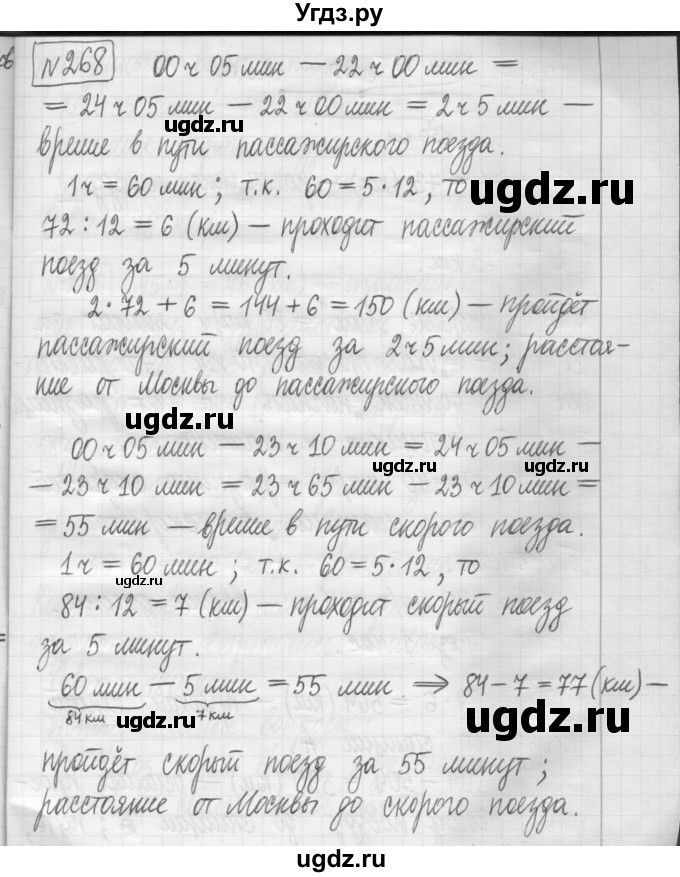 Угдз.ру
№268 00 ч 05 мин — 22 ч 00 мин =
= 24 ч 05 мин — 22 ч 00 мин = 2 ч 5 мин —
ugdz.ru ugdz.ru
время в пути пассажирского поезда.
1 ч = 60 мин; т.к. 60 = 5·12, то
72 : 12 = 6 (км) — проходит пассажирский
поезд за 5 минут.
2·72 + 6 = 144 + 6 = 150 (км) — пройдёт
пассажирский поезд за 2 ч 5 мин; расстоя-
ние от Москвы до пассажирского поезда.
ugdz.ru
00 ч 05 мин — 23 ч 10 мин = 24 ч 05 мин —
ugdz.ru ugdz.ru
— 23 ч 10 мин = 23 ч 65 мин — 23 ч 10 мин =
= 55 мин — время в пути скорого поезда.
1 ч = 60 мин; т.к. 60 = 5·12, то
ugdz.ru
84 : 12 = 7 (км) — проходит скорый поезд
за 5 минут.
60 мин — 5 мин = 55 мин ⇒ 84 — 7 = 77 (км) —
84 км 7 км
ugdz.ru ugdz.ru
пройдёт скорый поезд за 55 минут;
расстояние от Москвы до скорого поезда.
ugdz.ru